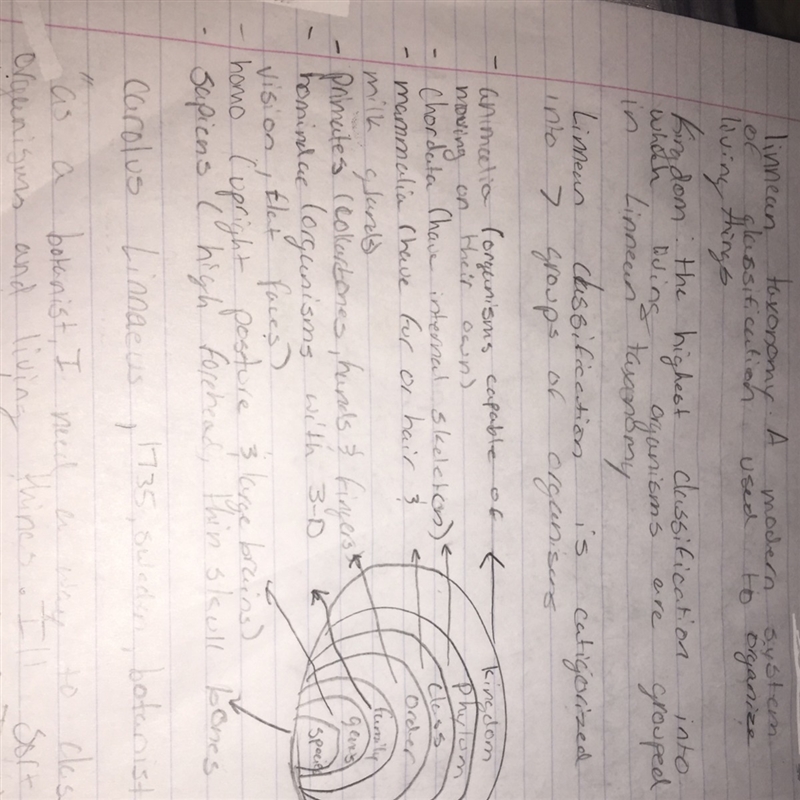 linnean taxonomy: A modern system
of classification used to organize
living things
Kingdom: the highest classification into
which living organisms are grouped
in Linnean taxonomy
Linnean classification is catigorized
into 7 groups of organisms
- animalia (organisms capable of
moving on their own)
- Chordata (have internal skeleton)
- mammalia (have fur or hair &
milk glands)
- primates (collarbones, hands & fingers
- homindae (organisms with 3-D
vision, flat faces)
- homo (upright posture & large brains)
- sapiens (high forehead, thin skull bones
Kingdom
Phylum
Class
Order
family
genus
species
Carolus Linnaeus, 1735, sweden, botanist
" as a botanist, I need a way to clas
organisms and living things. I'll sort